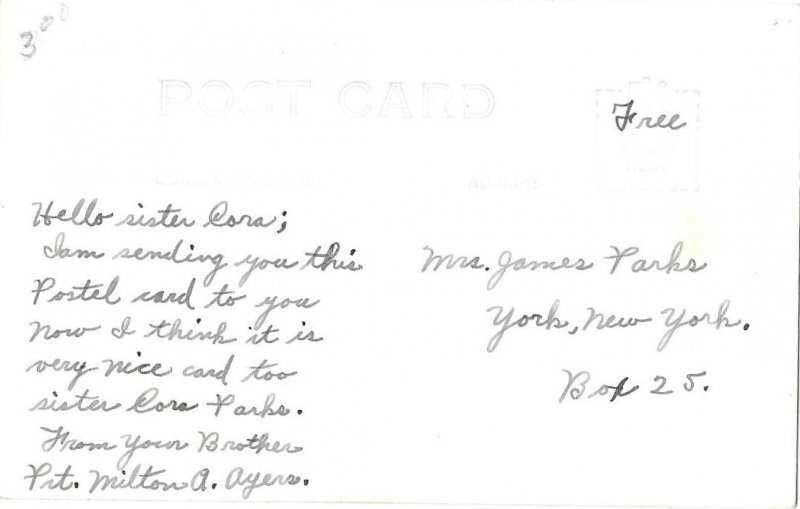 3.00
POST CARD
Free
CORRESPONDENCE
ADDRESS
Hello sister Cora;
Iam sending you this
Postel card to you
now I think it is
very nice card too
sister Cora Parks.
From your Brother
Pvt. Milton A. Ayers.
Mrs. James Parks
York, New York.
Box 25.